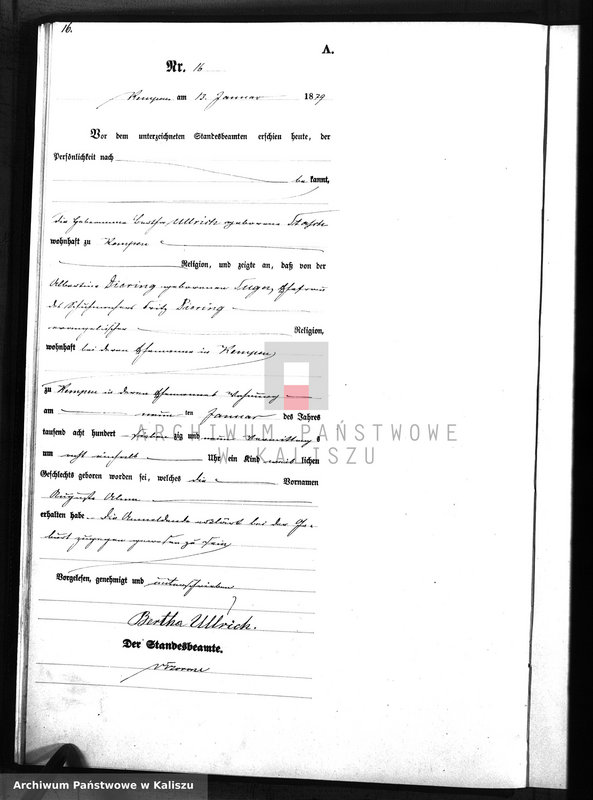 16.
A.
Nr. 16
Kempen am 13. Januar 1879
Vor dem unterzeichneten Standesbeamten erschien heute, der
Persönlichkeit nach
be kannt,
die Hebamme Bertha Ullrich geborene
wohnhaft zu Kempen
Religion, und zeigte an, daß von der
Albertine Diering geborenen Ehefrau
des Schuhmachers Fritz Diering
evangelischer Religion,
wohnhaft bei deren Ehemanne in Kempen
zu Kempen in deren Ehemannes Wohnung
am neun ten Januar des Jahres
tausend acht hundert sieben zig und neun Vormittag s
um acht einhalb Uhr ein Kind weib lichen
Geschlechts geboren worden sei, welches die Vornamen
Auguste
erhalten habe. Die Anmeldende erklärt bei der Ge-
burt zugegen gewesen zu sein
Vorgelesen, genehmigt und unterschrieben
Bertha Ullrich.
Der Standesbeamte.
ARCHIWUM PAŃSTWOWE
W KALISZU
Archiwum Państwowe w Kaliszu